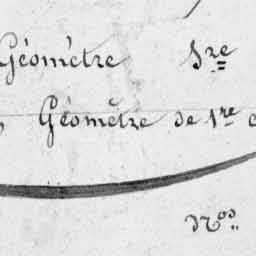 Géomètre 1re
Géomètre de 1re c
Nos